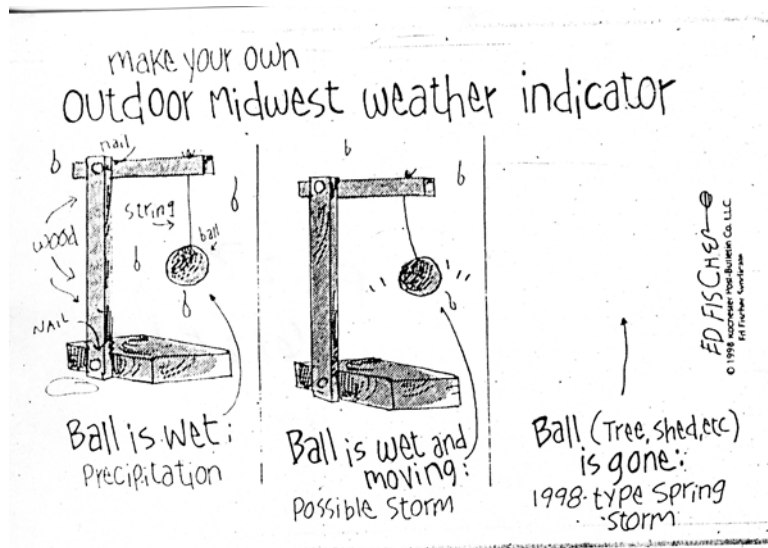 make your own
outdoor Midwest weather indicator
nail
string
ball
wood
NAIL
Ball is wet:
Precipitation
Ball is wet and
moving:
Possible Storm
Ball (Tree, shed, etc)
is gone:
1998-type Spring
storm
ED FISCHER
© 1998 Rochester Post-Bulletin Co. LLC
Ed Fischer Syndicate